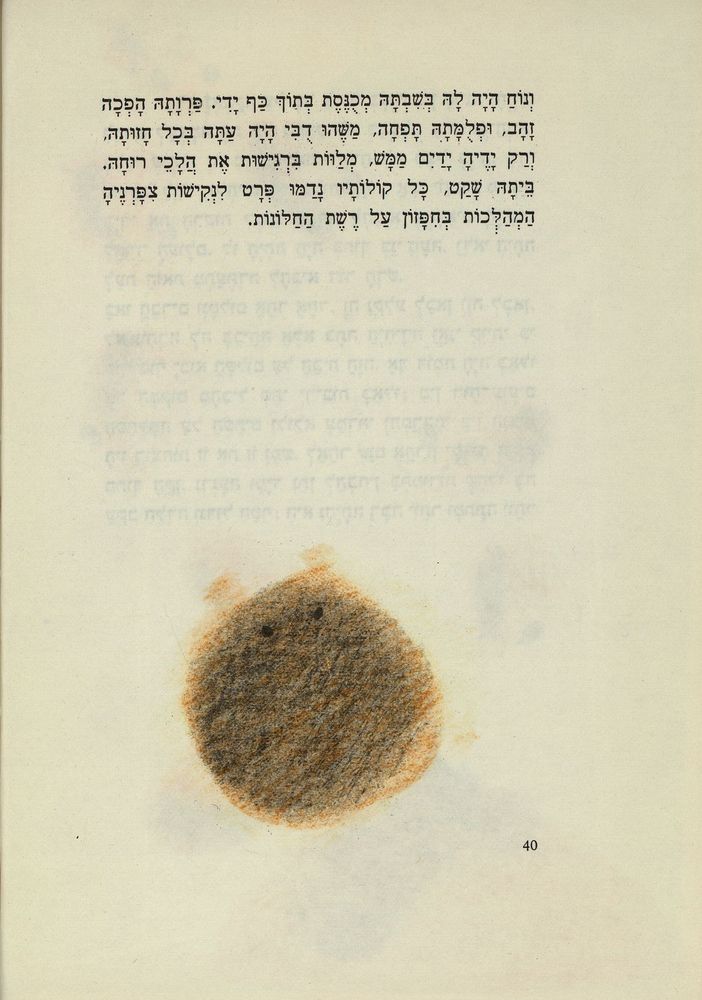 וְנוֹחַ הָיָה לָהּ בְּשִׁבְתָּהּ מְכֻנֶּסֶת בְּתוֹךְ כַּף יָדִי. פַּרְוָתָהּ הָפְכָה
זָהָב, וּפְלֻמָּתָהּ תָּפְחָה, מַשֶּׁהוּ דֻבִּי הָיָה עַתָּה בְּכָל חָזוּתָהּ,
וְרַק יָדֶיהָ יָדַיִם מַמָּשׁ, מְלַוּוֹת בִּרְגִישׁוּת אֶת הֲלָכֵי רוּחָהּ.
בֵּיתָהּ שָׁקַט, כָּל קוֹלוֹתָיו נָדַמּוּ פְּרָט לִנְקִישׁוֹת צִפָּרְנֶיהָ
הַמְהַלְּכוֹת בְּחִפָּזוֹן עַל רֶשֶׁת הַחַלּוֹנוֹת.
40